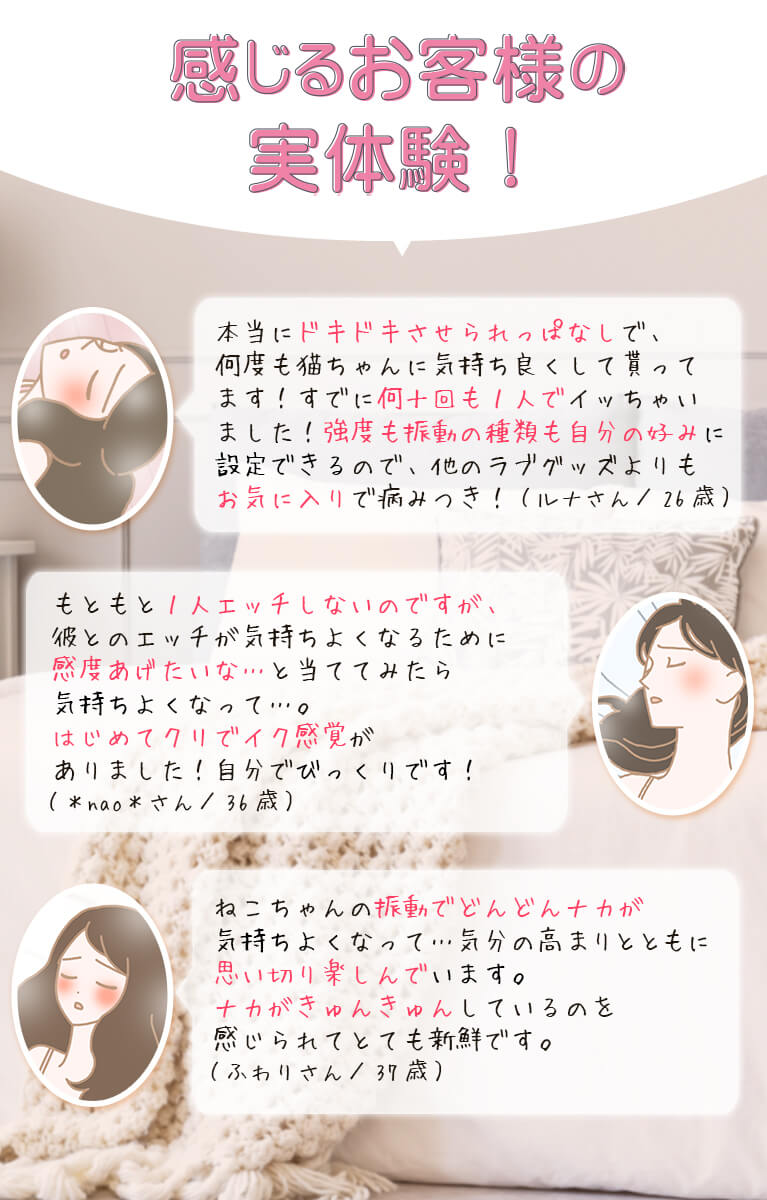 感じるお客様の
実体験！
本当にドキドキさせられっぱなしで、
何度も猫ちゃんに気持ち良くして貰って
ます！すでに何十回も１人でイッちゃい
ました！強度も振動の種類も自分の好みに
設定できるので、他のラブグッズよりも
お気に入りで病みつき！（ルナさん／26歳）
もともと１人エッチしないのですが、
彼とのエッチが気持ちよくなるために
感度あげたいな…と当ててみたら
気持ちよくなって…。
はじめてクリでイク感覚が
ありました！自分でびっくりです！
（＊nao＊さん／36歳）
ねこちゃんの振動でどんどんナカが
気持ちよくなって…気分の高まりとともに
思い切り楽しんでいます。
ナカがきゅんきゅんしているのを
感じられてとても新鮮です。
（ふわりさん／37歳）